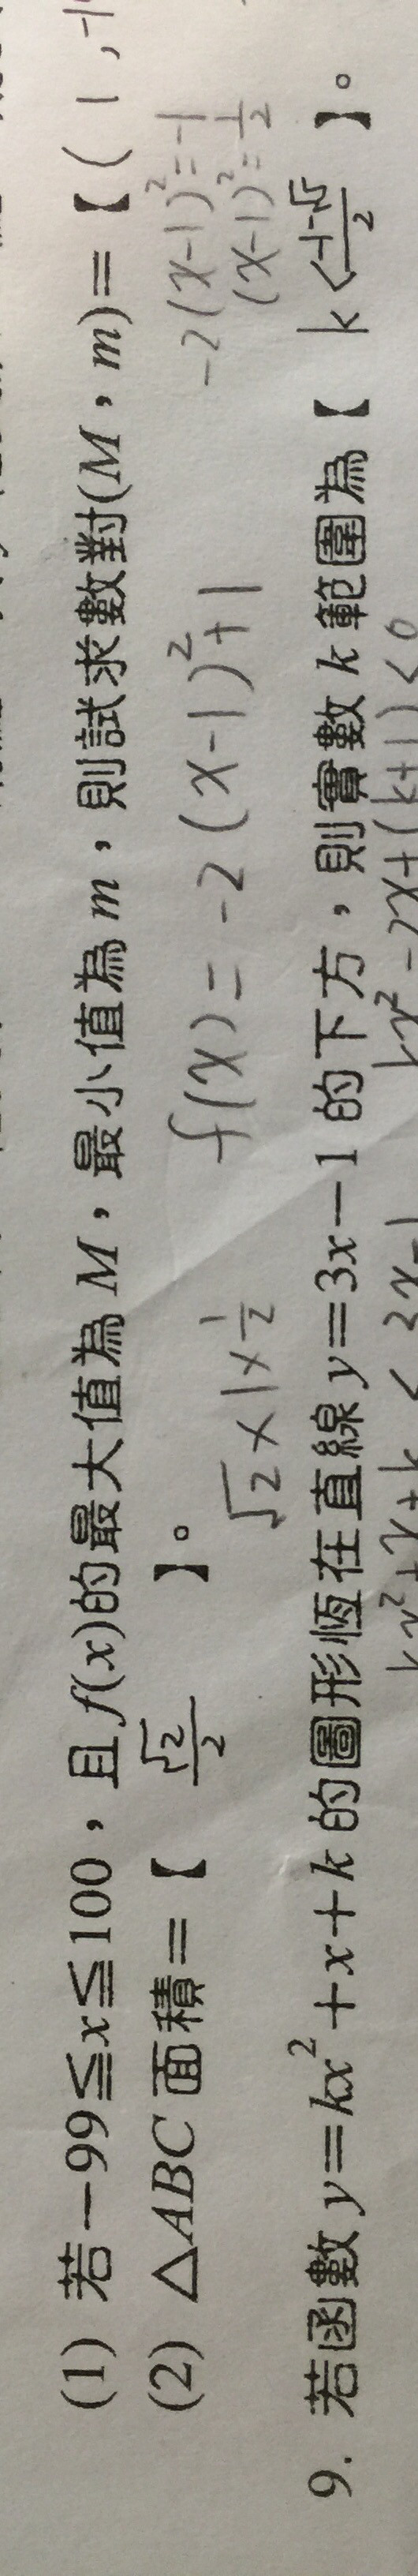 (1) 若－99≦x≦100，且f(x)的最大值為M，最小值為m，則試求數對(M，m)＝【(1,-1
-2(x-1)²=-1
(x-1)²=1/2
f(x)=-2(x-1)²+1
(2) △ABC面積＝【 √2/2 】。
√2×1×1/2
9. 若函數y＝kx²＋x＋k的圖形恆在直線y＝3x－1的下方，則實數k範圍為【 k<(-1-√5)/2 】。
kx²+x+k < 3x-1
kx²-2x+(k+1)<0